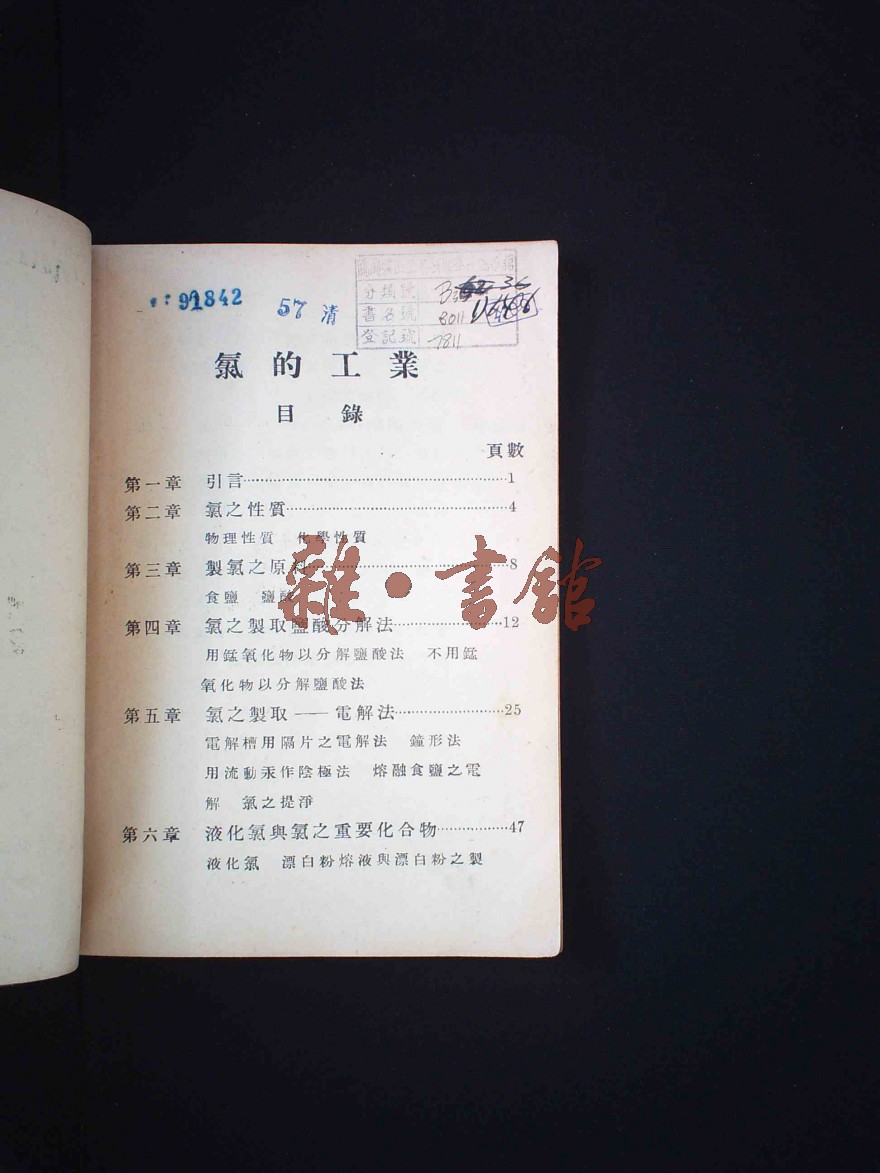 91842
57 清
分類號
書名號 8011
登記號 7811
氯的工業
目錄
頁數
第一章 引言……1
第二章 氯之性質……4
物理性質 化學性質
第三章 製氯之原料……8
食鹽 鹽酸
第四章 氯之製取鹽酸分解法……12
用錳氧化物以分解鹽酸法 不用錳
氧化物以分解鹽酸法
第五章 氯之製取——電解法……25
電解槽用隔片之電解法 鐘形法
用流動汞作陰極法 熔融食鹽之電
解 氯之提淨
第六章 液化氯與氯之重要化合物……47
液化氯 漂白粉熔液與漂白粉之製
雜·書館